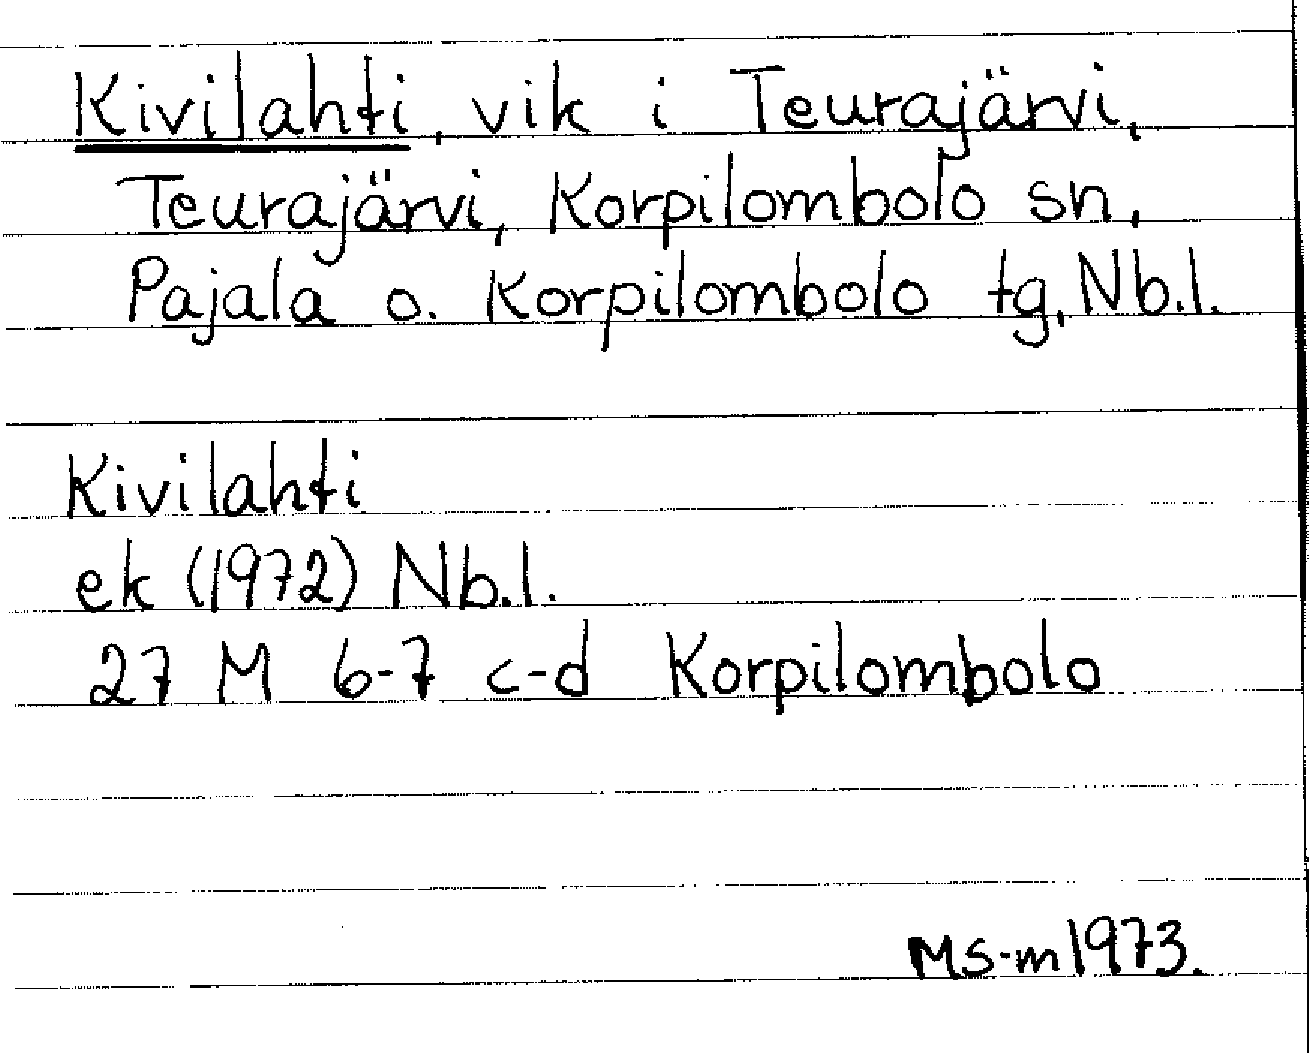 Kivilahti, vik i Teurajärvi,
Teurajärvi, Korpilombolo sn,
Pajala o. Korpilombolo tg, Nb.l.
Kivilahti
ek (1972) Nb.l.
27 M 6-7 c-d Korpilombolo
MS-m 1973.